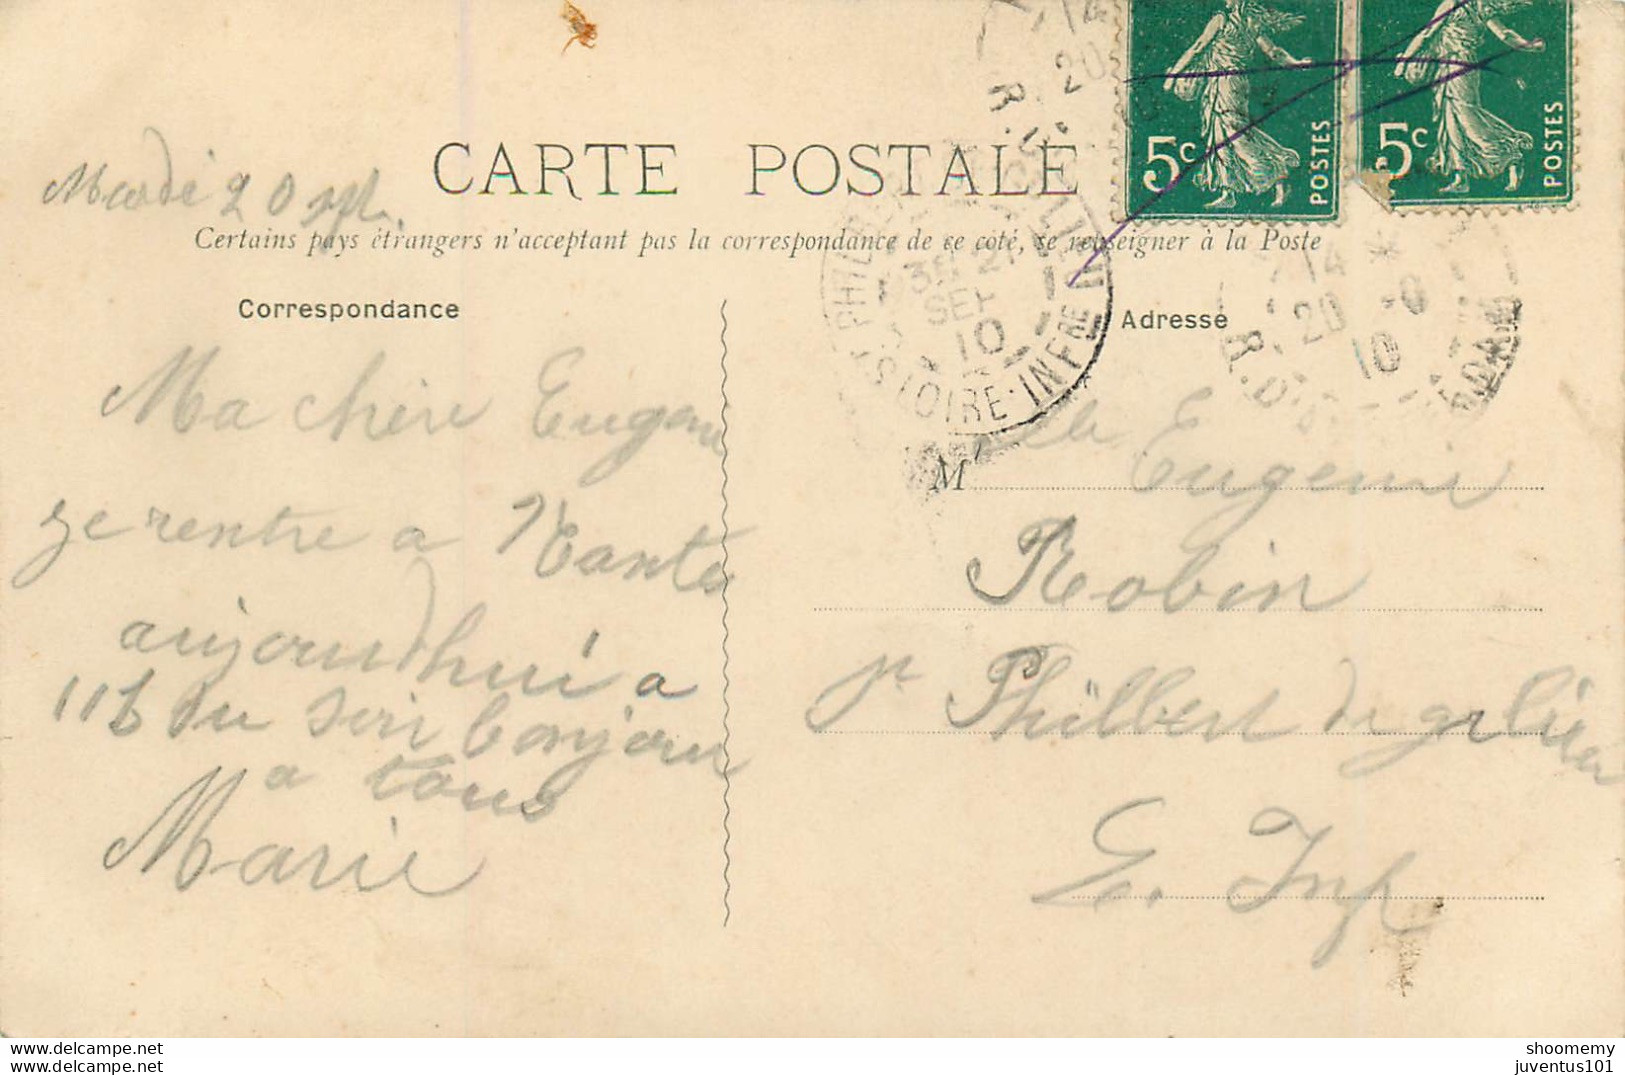 CARTE POSTALE
Mardi 20 sept.
Certains pays étrangers n'acceptent pas la correspondance de ce côté, se renseigner à la Poste
Correspondance
Ma chère Eugenie
je rentre a Nantes
aujourdhui a
11h du soir bonjour
a tous
Marie
Adresse
M elle Eugenie
Robin
St Philbert de
L. Inf
5c POSTES
5c POSTES
14
20
R.
21
SEPT
10
LOIRE-INFRE
14
20 -9
10
R. D
shoomemy
juventus101